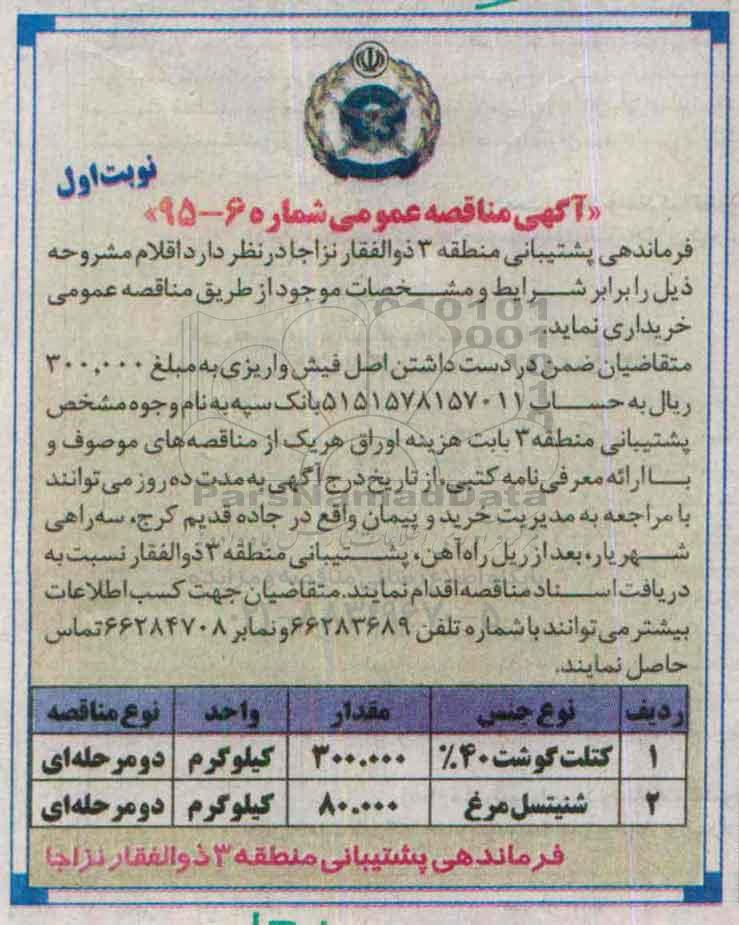 نوبت اول
«آگهی مناقصه عمومی شماره ۶-۹۵»
فرماندهی پشتیبانی منطقه ۳ ذوالفقار نزاجا در نظر دارد اقلام مشروحه
ذیل را برابر شرایط و مشخصات موجود از طریق مناقصه عمومی
خریداری نماید.
متقاضیان ضمن در دست داشتن اصل فیش واریزی به مبلغ ۳۰۰,۰۰۰
ریال به حساب ۵۱۵۱۵۷۸۱۵۷۰۱۱ بانک سپه به نام وجوه مشخص
پشتیبانی منطقه ۳ بابت هزینه اوراق هر یک از مناقصه‌های موصوف و
با ارائه معرفی‌نامه کتبی، از تاریخ درج آگهی به مدت ده روز می‌توانند
با مراجعه به مدیریت خرید و پیمان واقع در جاده قدیم کرج، سه‌راهی
شهریار، بعد از ریل راه‌آهن، پشتیبانی منطقه ۳ ذوالفقار نسبت به
دریافت اسناد مناقصه اقدام نمایند. متقاضیان جهت کسب اطلاعات
بیشتر می‌توانند با شماره تلفن ۶۶۲۸۳۶۸۹ و نمابر ۶۶۲۸۴۷۰۸ تماس
حاصل نمایند.
ردیف نوع جنس مقدار واحد نوع مناقصه
۱ کتلت گوشت ۴۰٪ ۳۰۰.۰۰۰ کیلوگرم دو مرحله‌ای
۲ شنیتسل مرغ ۸۰.۰۰۰ کیلوگرم دو مرحله‌ای
فرماندهی پشتیبانی منطقه ۳ ذوالفقار نزاجا
ParsNamadData